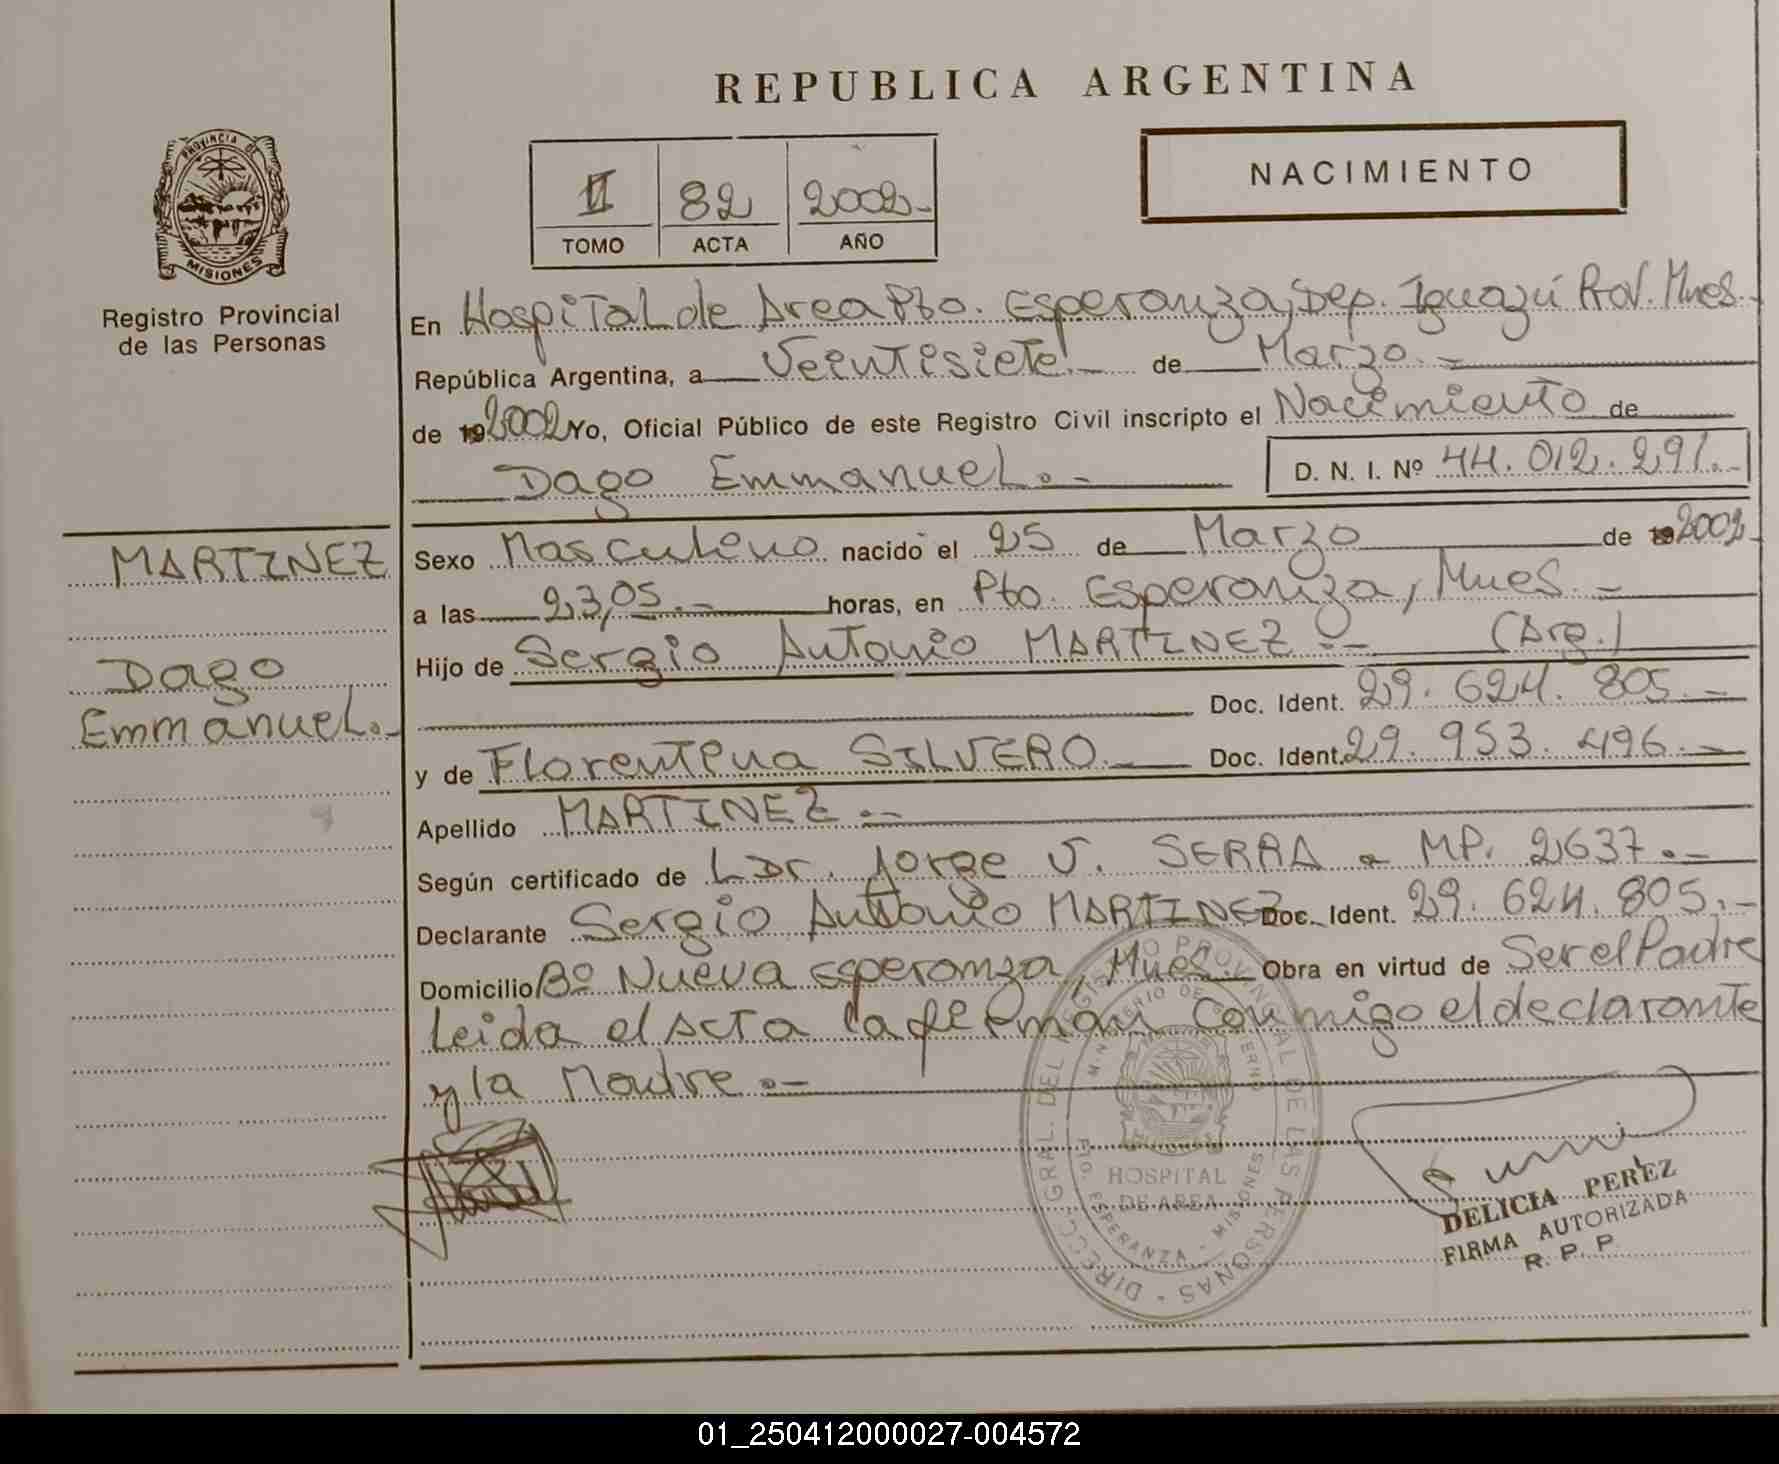 REPUBLICA ARGENTINA
PROVINCIA DE
MISIONES
Registro Provincial
de las Personas
II 82 2002-
TOMO ACTA AÑO
NACIMIENTO
En Hospital de Area Pto. Esperanza, Dep. Iguazú Prov. Mnes.
República Argentina, a Veintisiete.- de Marzo.-
de 192002 Yo, Oficial Público de este Registro Civil inscripto el Nacimiento de
Dago Emmanuel.- D. N. I. Nº 44.012.291.-
MARTINEZ
Dago
Emmanuel.-
Sexo Masculino nacido el 25 de Marzo de 192002
a las 23,05.- horas, en Pto. Esperanza, Mnes.-
Hijo de Sergio Antonio MARTINEZ.- (Arg.)
Doc. Ident. 29.624.805.-
y de Florentina SILVERO.- Doc. Ident. 29.953.496.-
Apellido MARTINEZ.-
Según certificado de Dr. Jorge V. SERRA - MP. 2637.-
Declarante Sergio Antonio MARTINEZ Doc. Ident. 29.624.805.-
Domicilio Bº Nueva Esperanza, Mnes.- Obra en virtud de Ser el Padre
leida el Acta la firman Conmigo el declarante
y la Madre.-
DIRECC. GRAL. DEL REGISTRO PROVINCIAL DE LAS PERSONAS -
MINISTERIO DE GOBIERNO
MISIONES
HOSPITAL
DE AREA
PTO. ESPERANZA - MISIONES
DELICIA PEREZ
FIRMA AUTORIZADA
R. P. P.
01_250412000027-004572